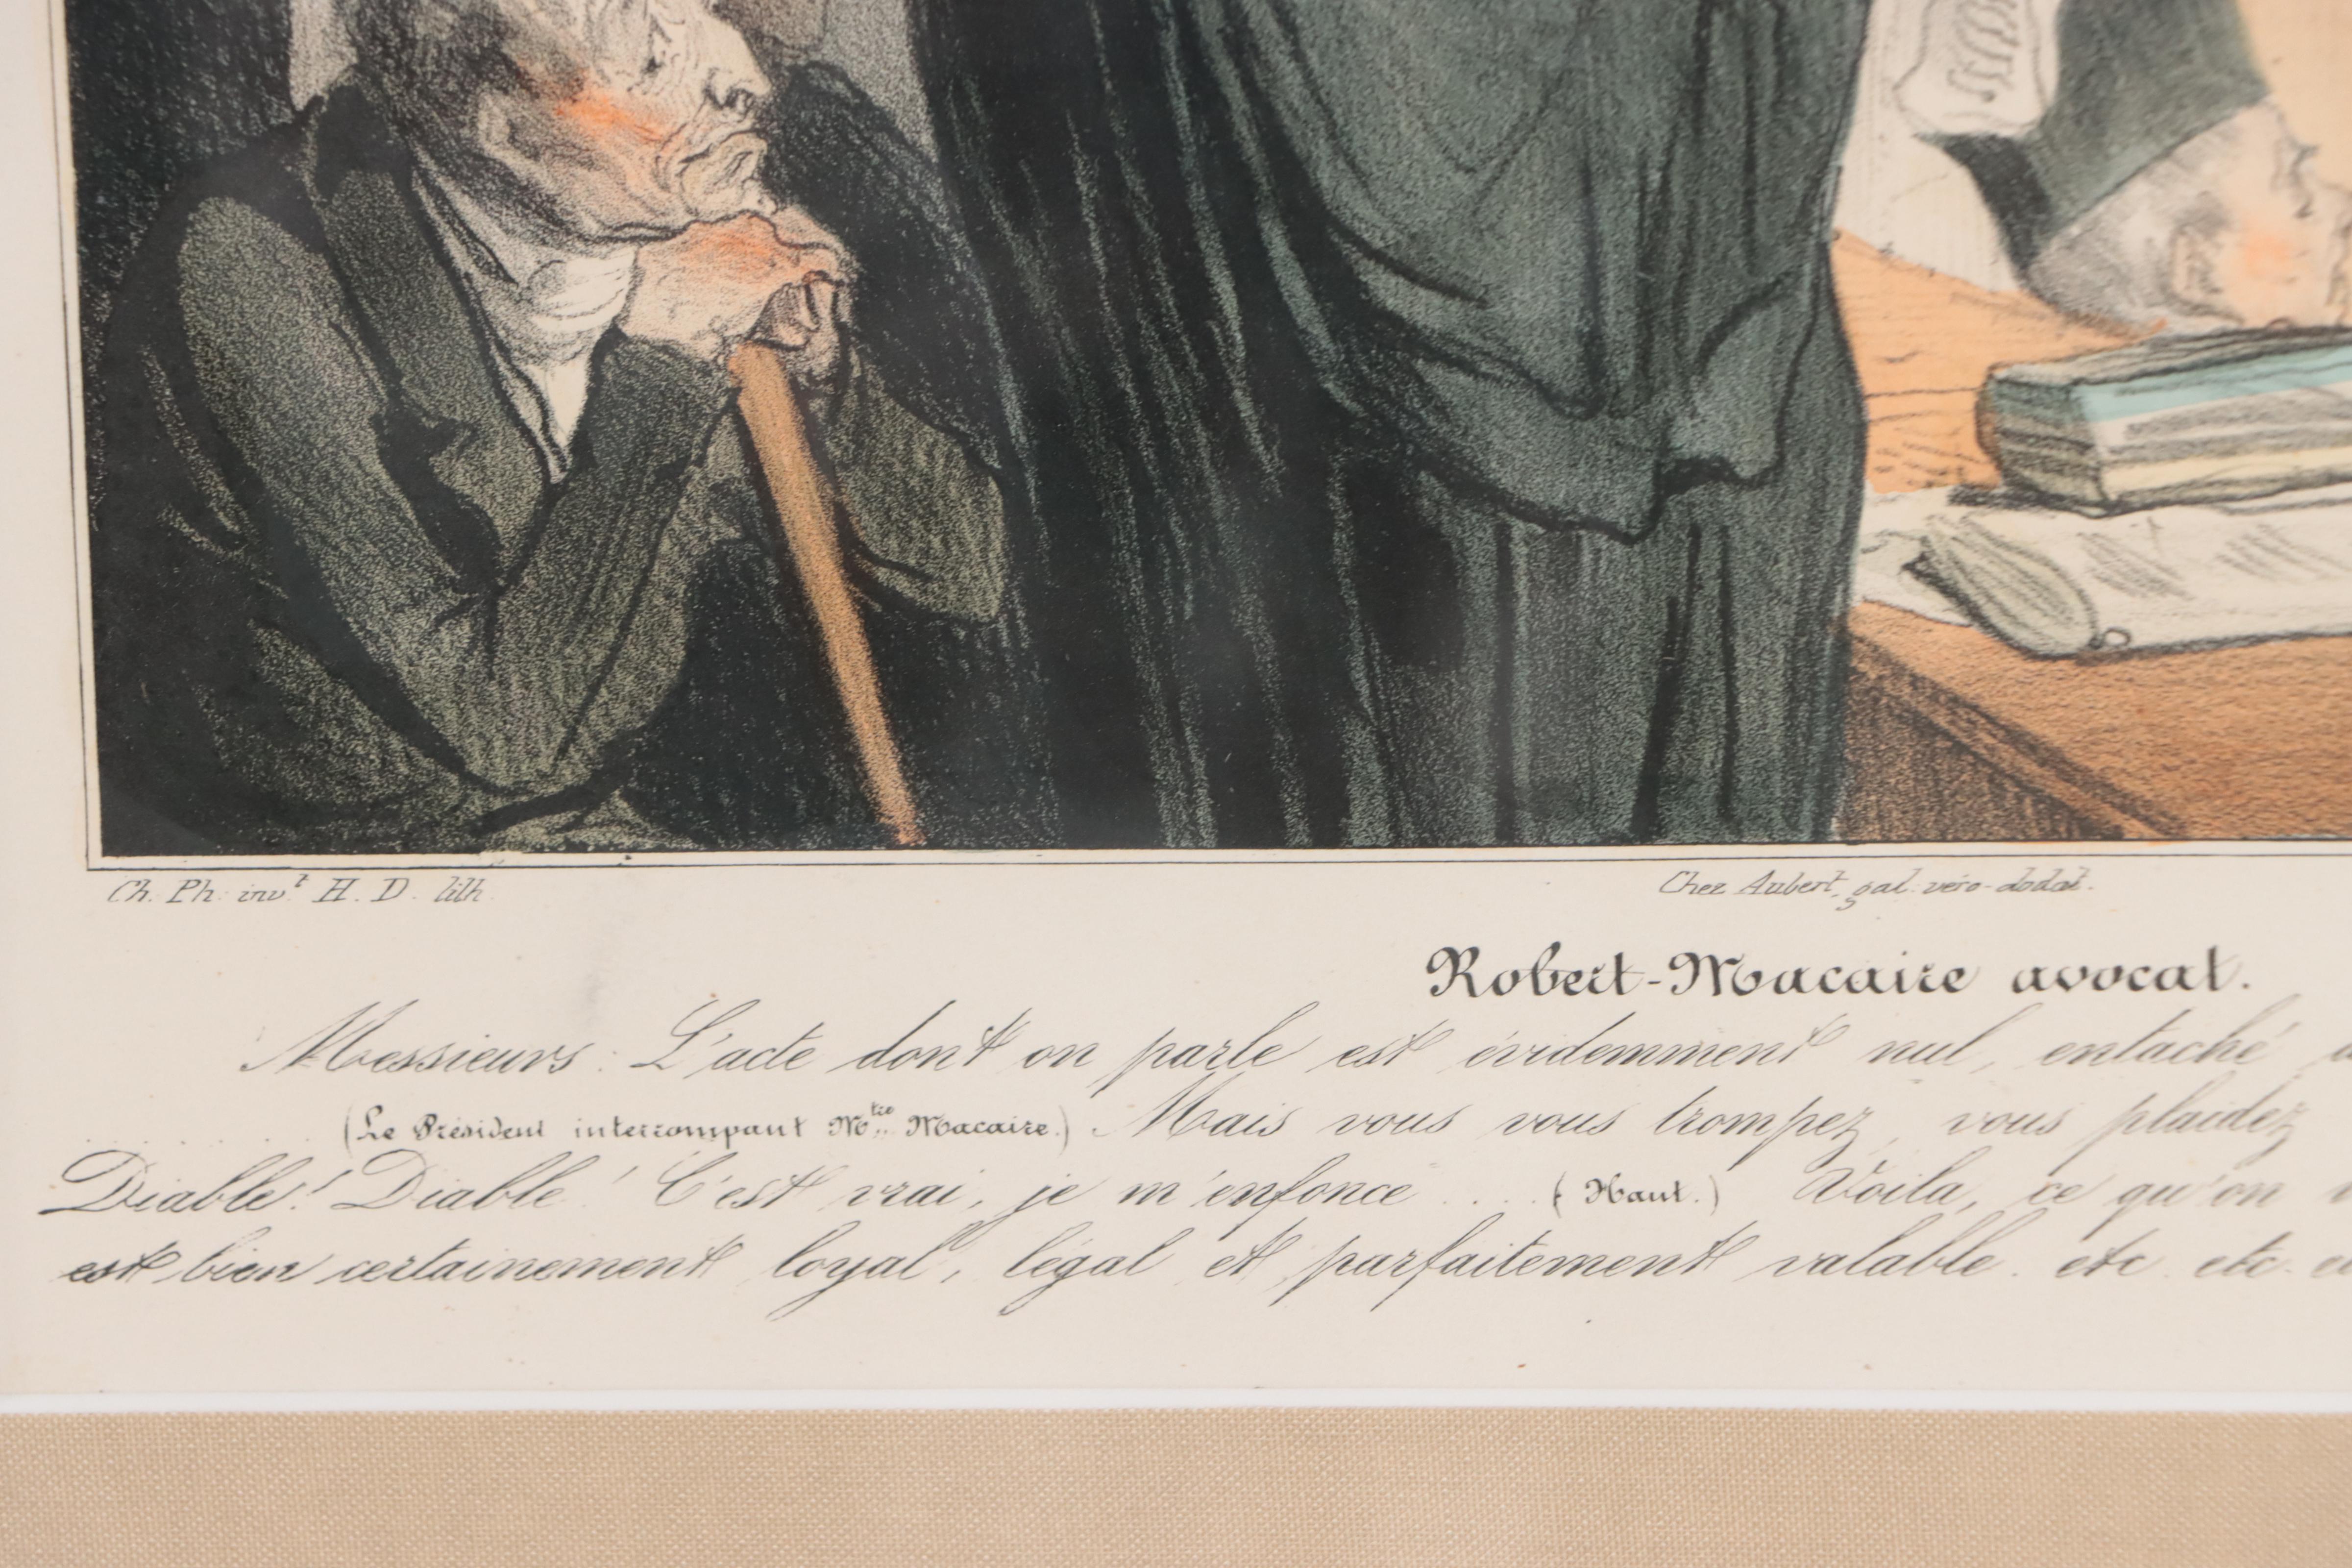 Ch. Ph. inv.t H. D. lith.
Chez Aubert, gal. véro-dodat.
Robert-Macaire avocat.
Messieurs : L'acte dont on parle est évidemment nul, entaché
(Le Président interrompant M.tre Macaire.) Mais vous vous trompez, vous plaidez
Diable! Diable! C'est vrai, je m'enfonce .... (Haut.) Voila, ce qu'on
est bien certainement loyal, légal et parfaitement valable. etc. etc.